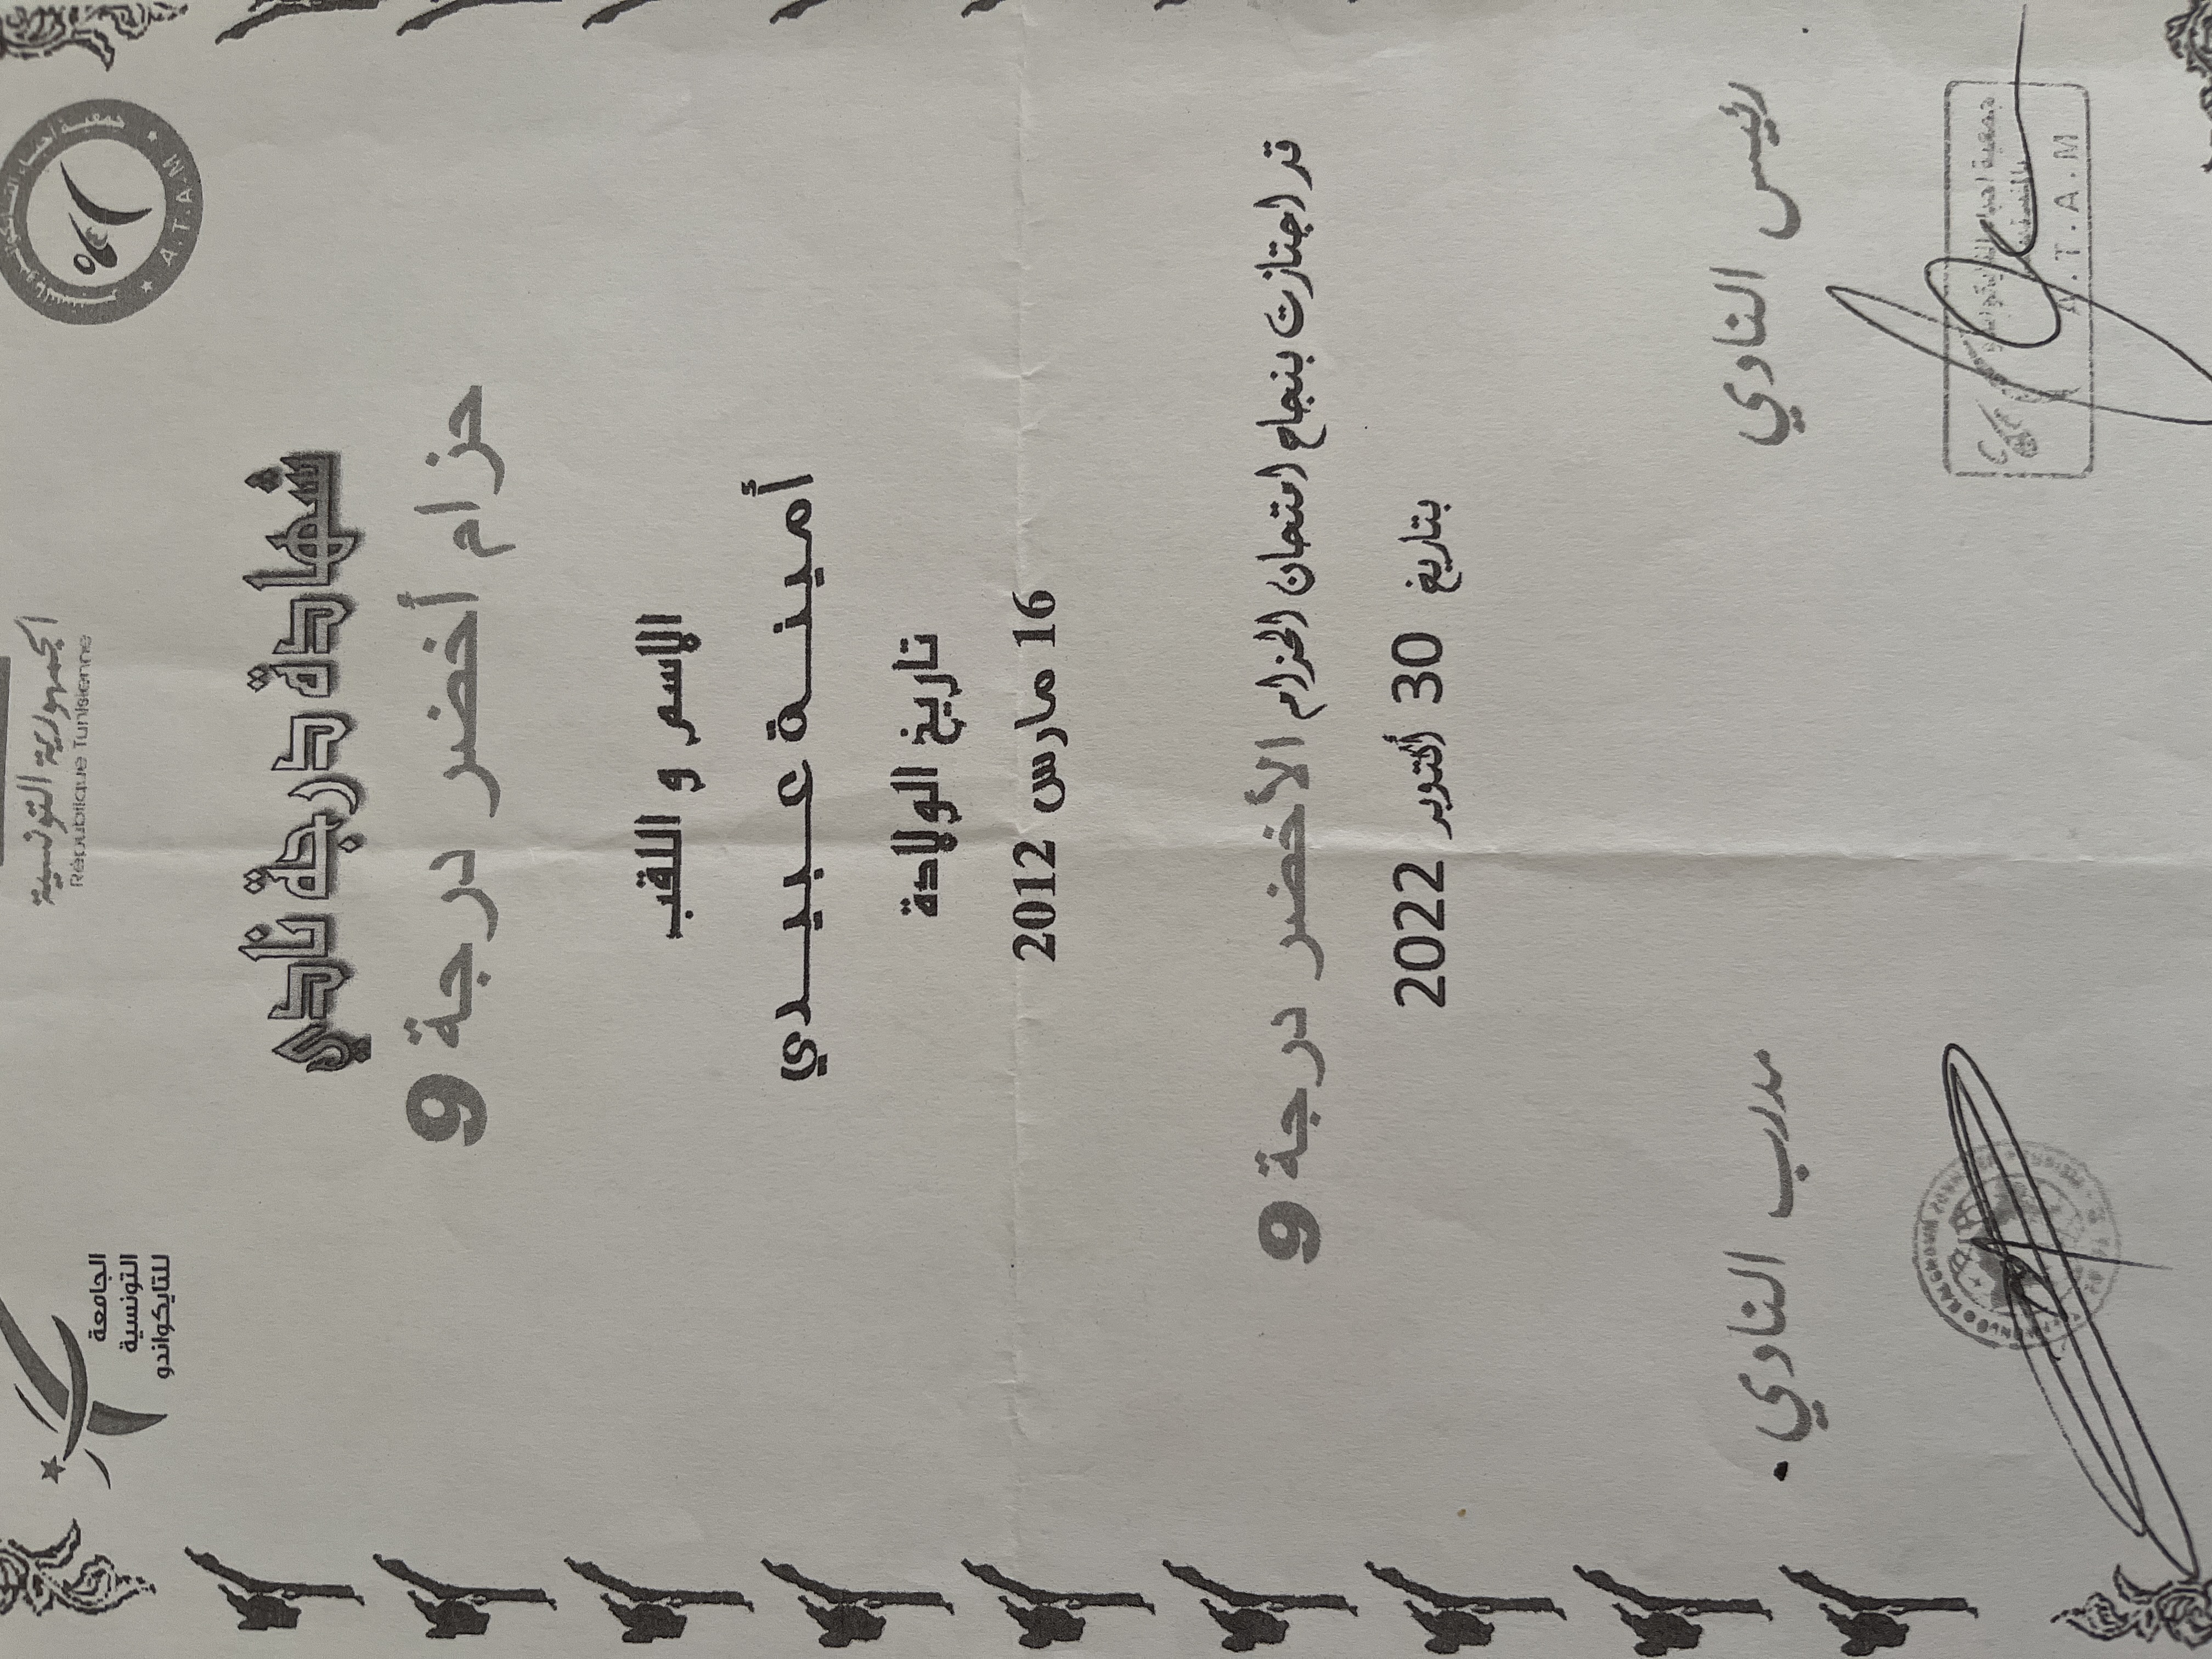 الجمهورية التونسية
République Tunisienne
الجامعة
التونسية
للتايكواندو
جمعية احباء التايكواندو
A.T.A.M
شهادة درجة نادي
حزام أخضر درجة 9
الاسم و اللقب
أمينة عبيدي
تاريخ الولادة
16 مارس 2012
قد اجتازت بنجاح امتحان الحزام الأخضر درجة 9
بتاريخ 30 أكتوبر 2022
رئيس النادي
مدرب النادي
جمعية احباء التايكواندو
A.T.A.M